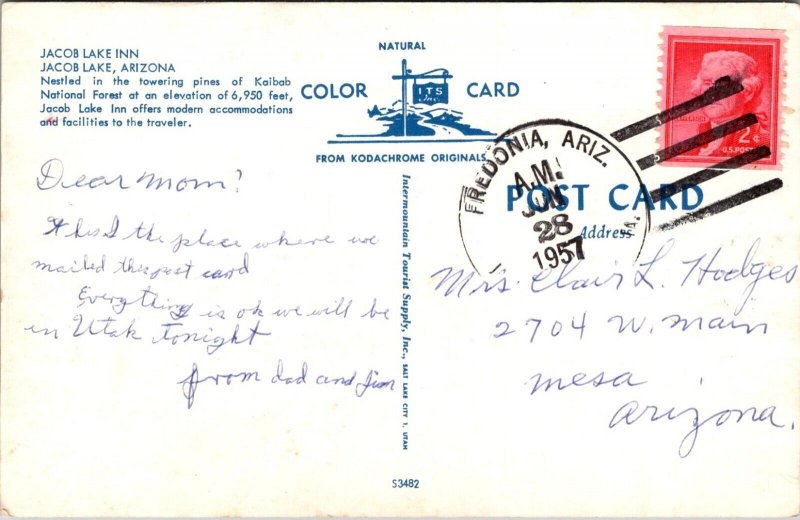 JACOB LAKE INN
JACOB LAKE, ARIZONA
Nestled in the towering pines of Kaibab
National Forest at an elevation of 6,950 feet,
Jacob Lake Inn offers modern accommodations
and facilities to the traveler.
NATURAL
COLOR ITS Inc. CARD
FROM KODACHROME ORIGINALS
FREDONIA, ARIZ.
A.M.
JUN
28
1957
2¢
U.S. POST
POST CARD
Address
Dear Mom?
This I the place where we
mailed this post card
Everything is ok we will be
in Utah tonight
from dad and Jim
Intermountain Tourist Supply, Inc., SALT LAKE CITY 1, UTAH
Mrs. Clair L. Hodges
2704 W. Main
mesa
arizona.
S3482